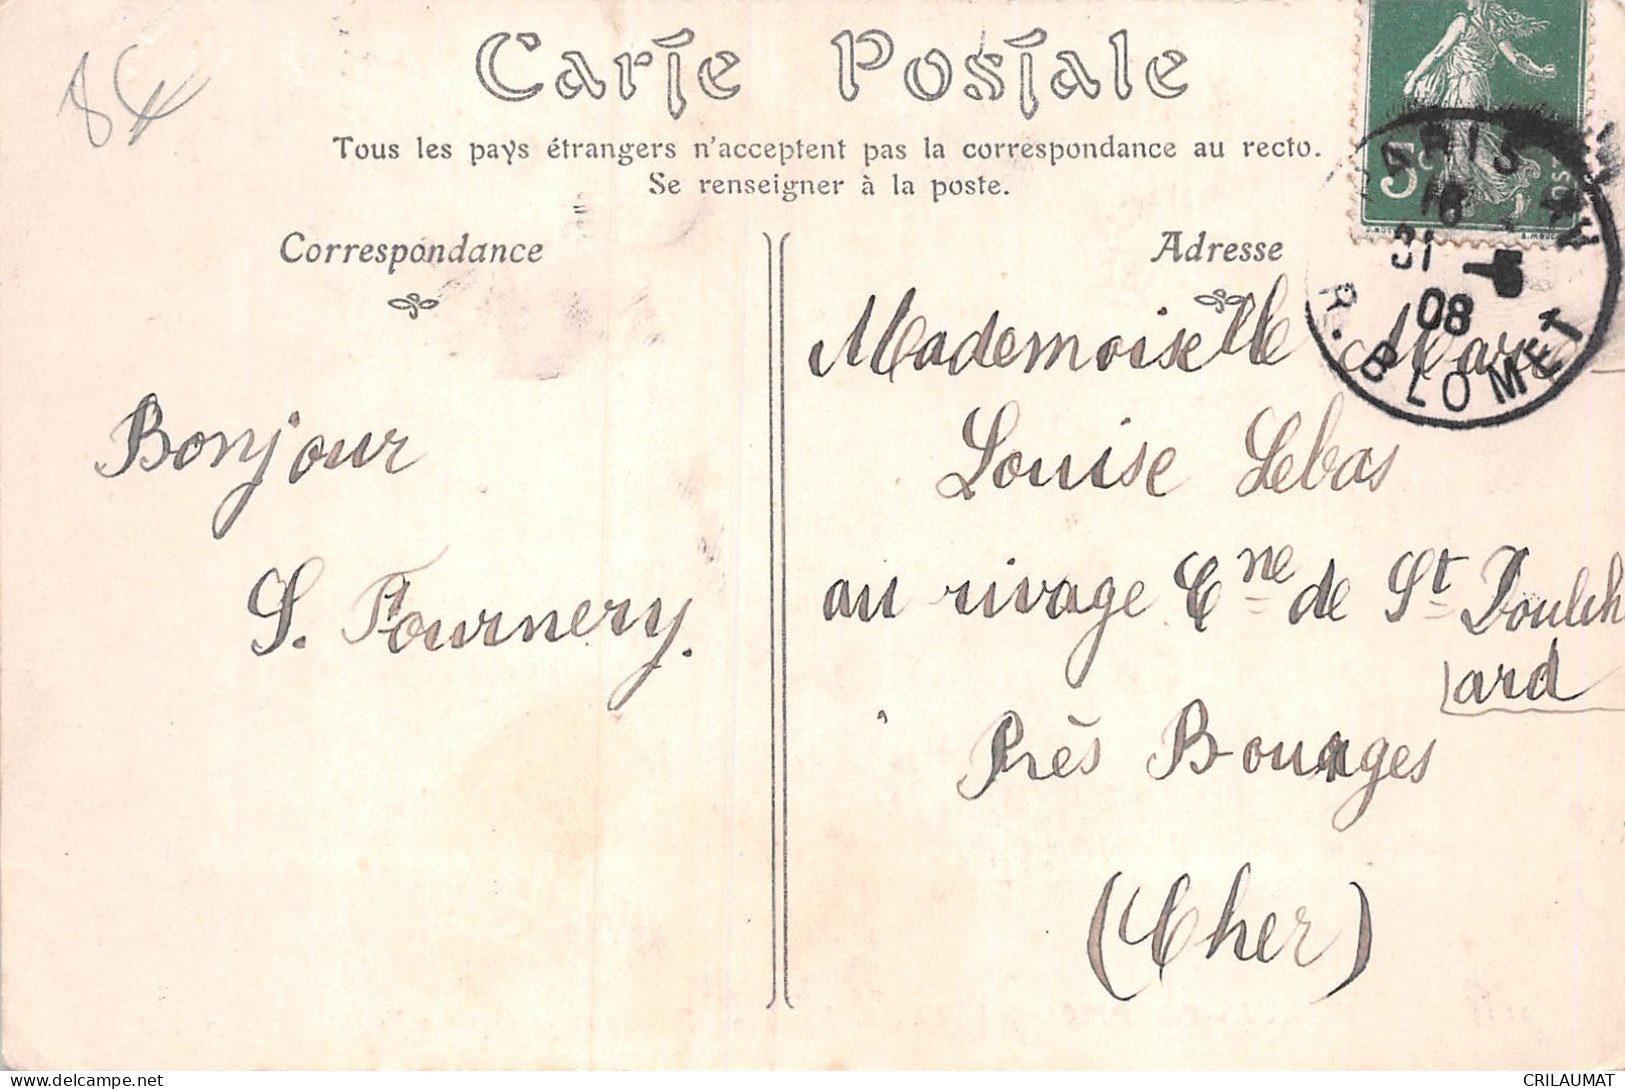 8€
Carte Postale
Tous les pays étrangers n'acceptent pas la correspondance au recto.
Se renseigner à la poste.
Correspondance
Bonjour
S. Fournery.
Adresse
Mademoiselle Marie
Louise Lebas
au rivage Cne de St Doulch
ard
Près Bourges
(Cher)
5c
PARIS
08
R. BLOMET
CRILAUMAT